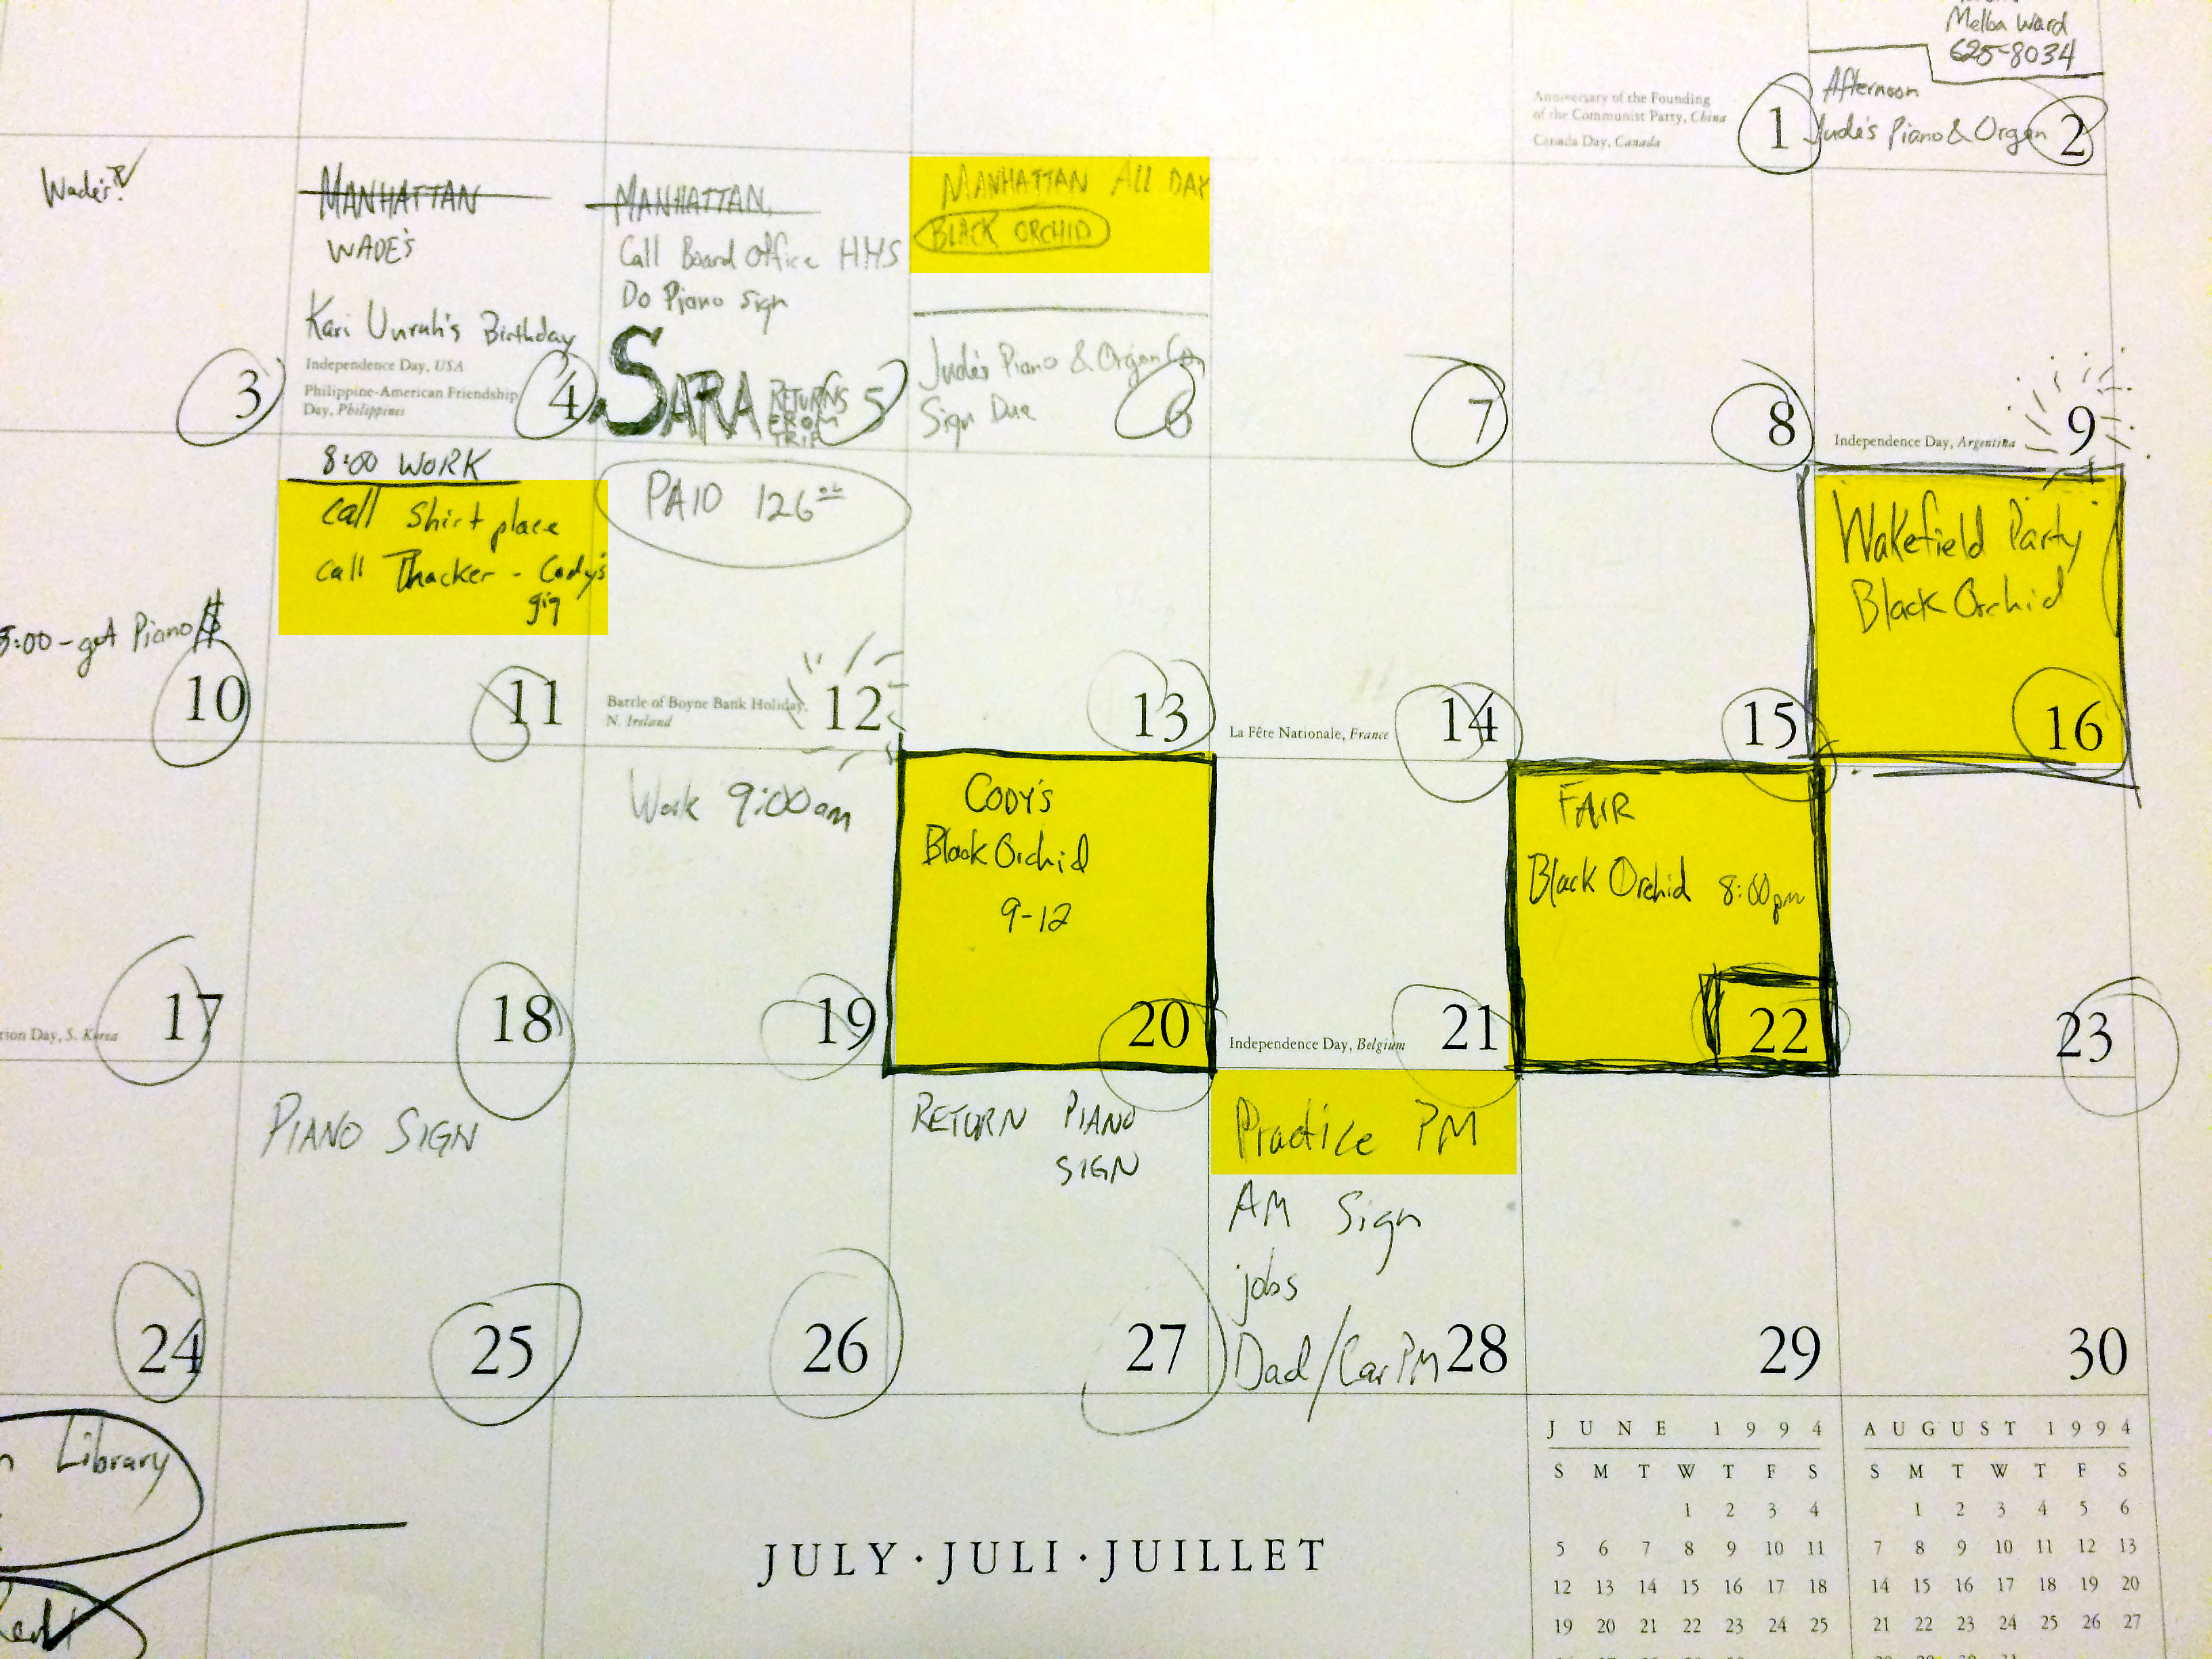 Melba Ward
625-8034
Anniversary of the Founding
of the Communist Party, China
Canada Day, Canada
1
Afternoon
Jude's Piano & Organ
2
Wade's?
3
MANHATTAN
WADE'S
Kari Unruh's Birthday
Independence Day, USA
Philippine-American Friendship
Day, Philippines
4
MANHATTAN
Call Board Office HHS
Do Piano Sign
SARA RETURNS
FROM
TRIP
5
MANHATTAN ALL DAY
BLACK ORCHID
Jude's Piano & Organ
Sign Due
6
7
8
Independence Day, Argentina
9
5:00-get Piano $
10
8:00 WORK
call shirt place
call Thacker - Cody's
gig
11
PAID 126
Battle of Boyne Bank Holiday,
N. Ireland
12
13
La Fête Nationale, France
14
15
Wakefield Party
Black Orchid
16
Day, S. Korea
17
18
Work 9:00am
19
CODY'S
Black Orchid
9-12
20
Independence Day, Belgium
21
FAIR
Black Orchid 8:00pm
22
23
24
PIANO SIGN
25
26
RETURN PIANO
SIGN
27
Practice PM
AM Sign
jobs
Dad/Car PM
28
29
30
Library
JULY · JULI · JUILLET
JUNE 1994
S M T W T F S
1 2 3 4
5 6 7 8 9 10 11
12 13 14 15 16 17 18
19 20 21 22 23 24 25
AUGUST 1994
S M T W T F S
1 2 3 4 5 6
7 8 9 10 11 12 13
14 15 16 17 18 19 20
21 22 23 24 25 26 27